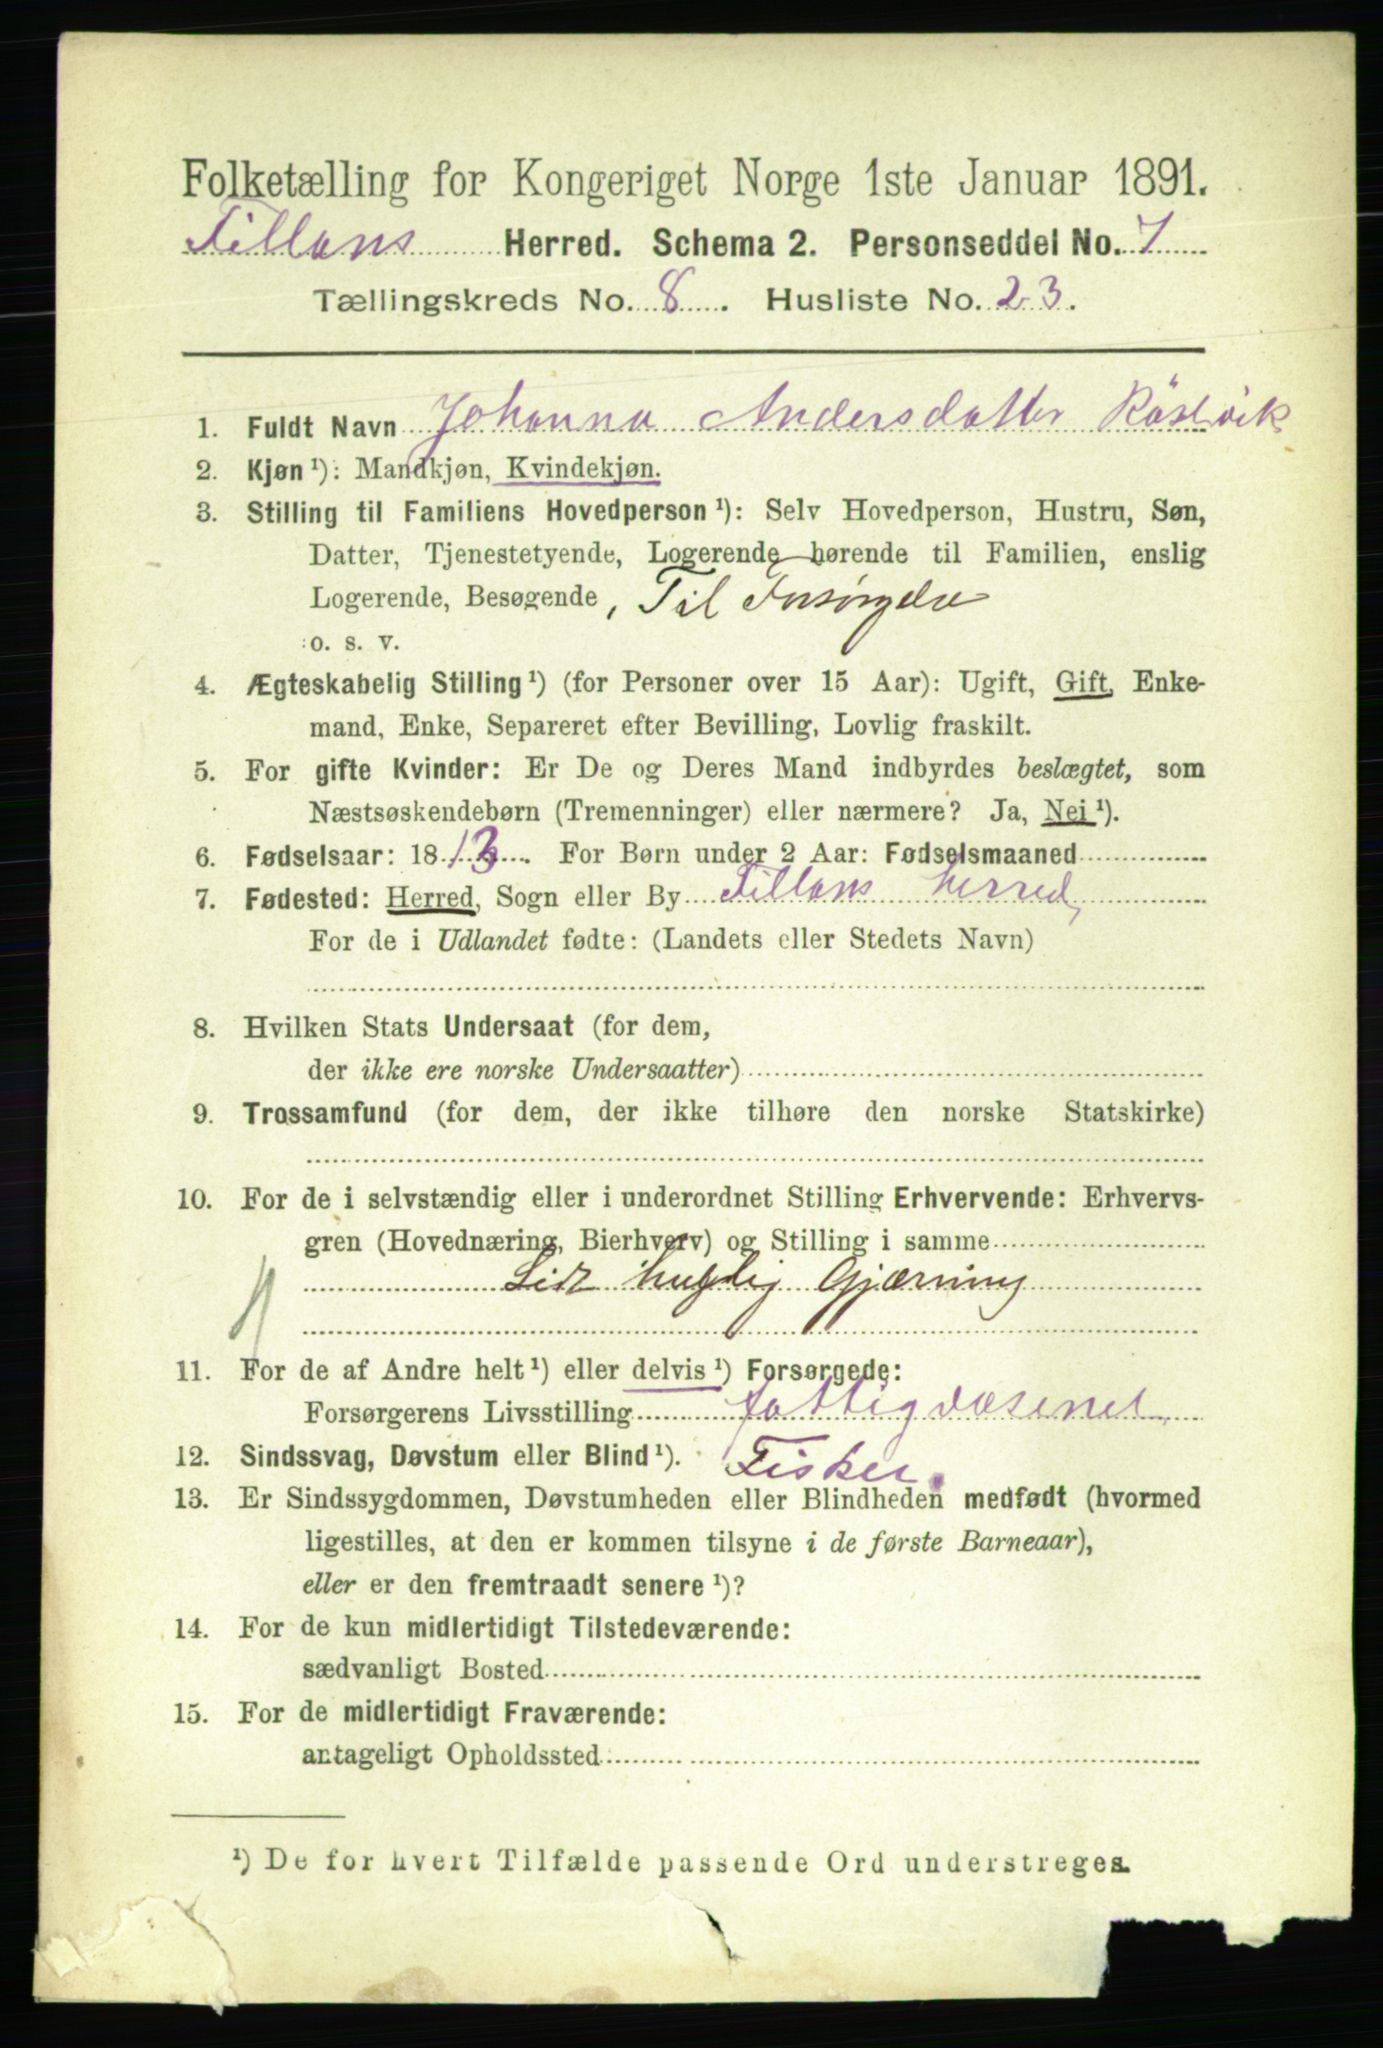 Folketælling for Kongeriget Norge 1ste Januar 1891.
Fillans Herred. Schema 2. Personseddel No. 7
Tællingskreds No. 8. Husliste No. 23.
1. Fuldt Navn Johanna Andersdatter
2. Kjøn ¹): Mandkjøn, Kvindekjøn.
3. Stilling til Familiens Hovedperson ¹): Selv Hovedperson, Hustru, Søn,
Datter, Tjenestetyende, Logerende hørende til Familien, enslig
Logerende, Besøgende, Til Forsørgelse
o. s. v.
4. Ægteskabelig Stilling ¹) (for Personer over 15 Aar): Ugift, Gift, Enke-
mand, Enke, Separeret efter Bevilling, Lovlig fraskilt.
5. For gifte Kvinder: Er De og Deres Mand indbyrdes beslægtet, som
Næstsøskendebørn (Tremenninger) eller nærmere? Ja, Nei ¹).
6. Fødselsaar: 1813. For Børn under 2 Aar: Fødselsmaaned
7. Fødested: Herred, Sogn eller By Fillans herred,
For de i Udlandet fødte: (Landets eller Stedets Navn)
8. Hvilken Stats Undersaat (for dem,
der ikke ere norske Undersaatter)
9. Trossamfund (for dem, der ikke tilhøre den norske Statskirke)
10. For de i selvstændig eller i underordnet Stilling Erhvervende: Erhvervs-
gren (Hovednæring, Bierhverv) og Stilling i samme
Lidt huslig Gjærning
11. For de af Andre helt ¹) eller delvis ¹) Forsørgede:
Forsørgerens Livsstilling fattigvæsenet
12. Sindssvag, Døvstum eller Blind ¹). Fisker.
13. Er Sindssygdommen, Døvstumheden eller Blindheden medfødt (hvormed
ligestilles, at den er kommen tilsyne i de første Barneaar),
eller er den fremtraadt senere ¹)?
14. For de kun midlertidigt Tilstedeværende:
sædvanligt Bosted
15. For de midlertidigt Fraværende:
antageligt Opholdssted
¹) De for hvert Tilfælde passende Ord understreges.